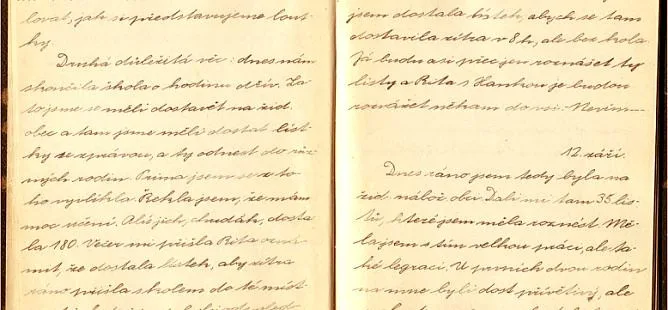 lovat, jak si představujeme lout
ky.
Druhá důležitá věc: dnes nám
skončila škola o hodinu dřív. Za
to jsme se měli dostavět na žid.
obec a tam jsme měli dostat líst-
ky se zprávou, a ty odnést do růz
ných rodin. Prima jsem se z to
ho vyvlíkla. Řekla jsem, že mám
moc učení. Ališ jich, chudák, dosta
la 180. Večer mi přišla Rita ozná
mit, že dostala lístek, aby zítra
ráno přišla s kolem do té míst
jsem dostala lístek, abych se tam
dostavila zítra v 8 h, ale bez kola.
Já budu asi přec jen roznášet ty
listy a Rita s Hankou je budou
rozvážet někam do vsi. Nevím
12. září.
Dnes ráno jsem tedy byla na
žid. nábož. obci. Dali mi tam 35 lis
tů, které jsem měla roznést. Mě
la jsem s tím velkou práci, ale ta
ké legraci. V prvních dvou rodin
na mne byli dost přívětiví, ale